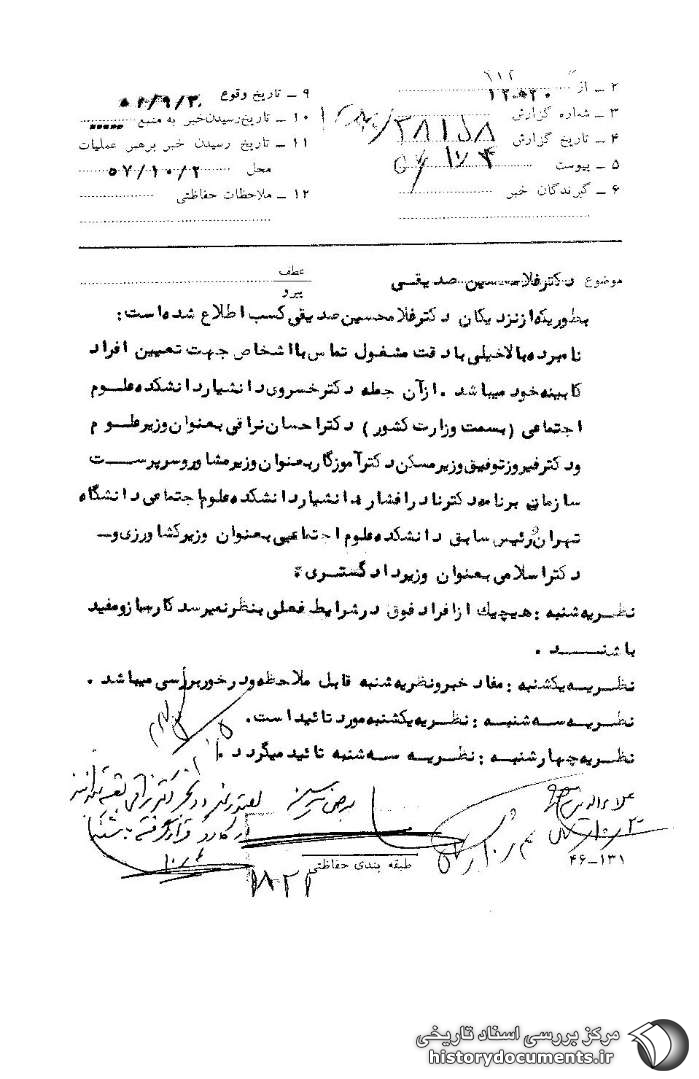 ۳۱۲
۲ ـ از ۱۲۰۹۲۰
۳ ـ شماره گزارش ۳۸۱۵۸
۴ ـ تاریخ گزارش ۵۷/۱۰/۳
۵ ـ پیوست
۶ ـ گیرندگان خبر
۹ ـ تاریخ وقوع ۵۷/۹/۳۰
۱۰ ـ تاریخ رسیدن خبر به منبع
۱۱ ـ تاریخ رسیدن خبر برهبر عملیات
محل ۵۷/۱۰/۲
۱۲ ـ ملاحظات حفاظتی
موضوع دکترغلامحسین صدیقی
عطف
پیرو
بطوریکه از نزدیکان دکترغلامحسین صدیقی کسب اطلاع شده است:
نامبرده بالا خیلی با دقت مشغول تماس با اشخاص جهت تعیین افراد
کابینه خود میباشد . از آن جمله دکترخسروی دانشیار دانشکده علوم
اجتماعی (بسمت وزارت کشور) دکتراحسان نراقی بعنوان وزیرعلوم
ودکترفیروز توفیق وزیرمسکن دکترآموزگار بعنوان وزیرمشاور وسرپرست
سازمان برنامه دکترنادر افشار دانشیار دانشکده علوم اجتماعی دانشگاه
تهران رئیس سابق دانشکده علوم اجتماعی بعنوان وزیرکشاورزی و ـ
دکتراسلامی بعنوان وزیردادگستری .
نظریه شنبه : هیچیک از افراد فوق در شرایط فعلی بنظر نمیرسد کارساز و مفید
باشند .
نظریه یکشنبه : مفاد خبر ونظریه شنبه قابل ملاحظه ودرخور بررسی میباشد .
نظریه سه شنبه : نظریه یکشنبه مورد تائید است.
نظریه چهارشنبه : نظریه سه شنبه تائید میگردد .
بعرض رسید
۱۰/۴
۴ ر ۱۰ ر ۵۷
طبقه بندی حفاظتی
۱۳۱-۴۶
۱۸۲۱
مرکز بررسی اسناد تاریخی
historydocuments.ir